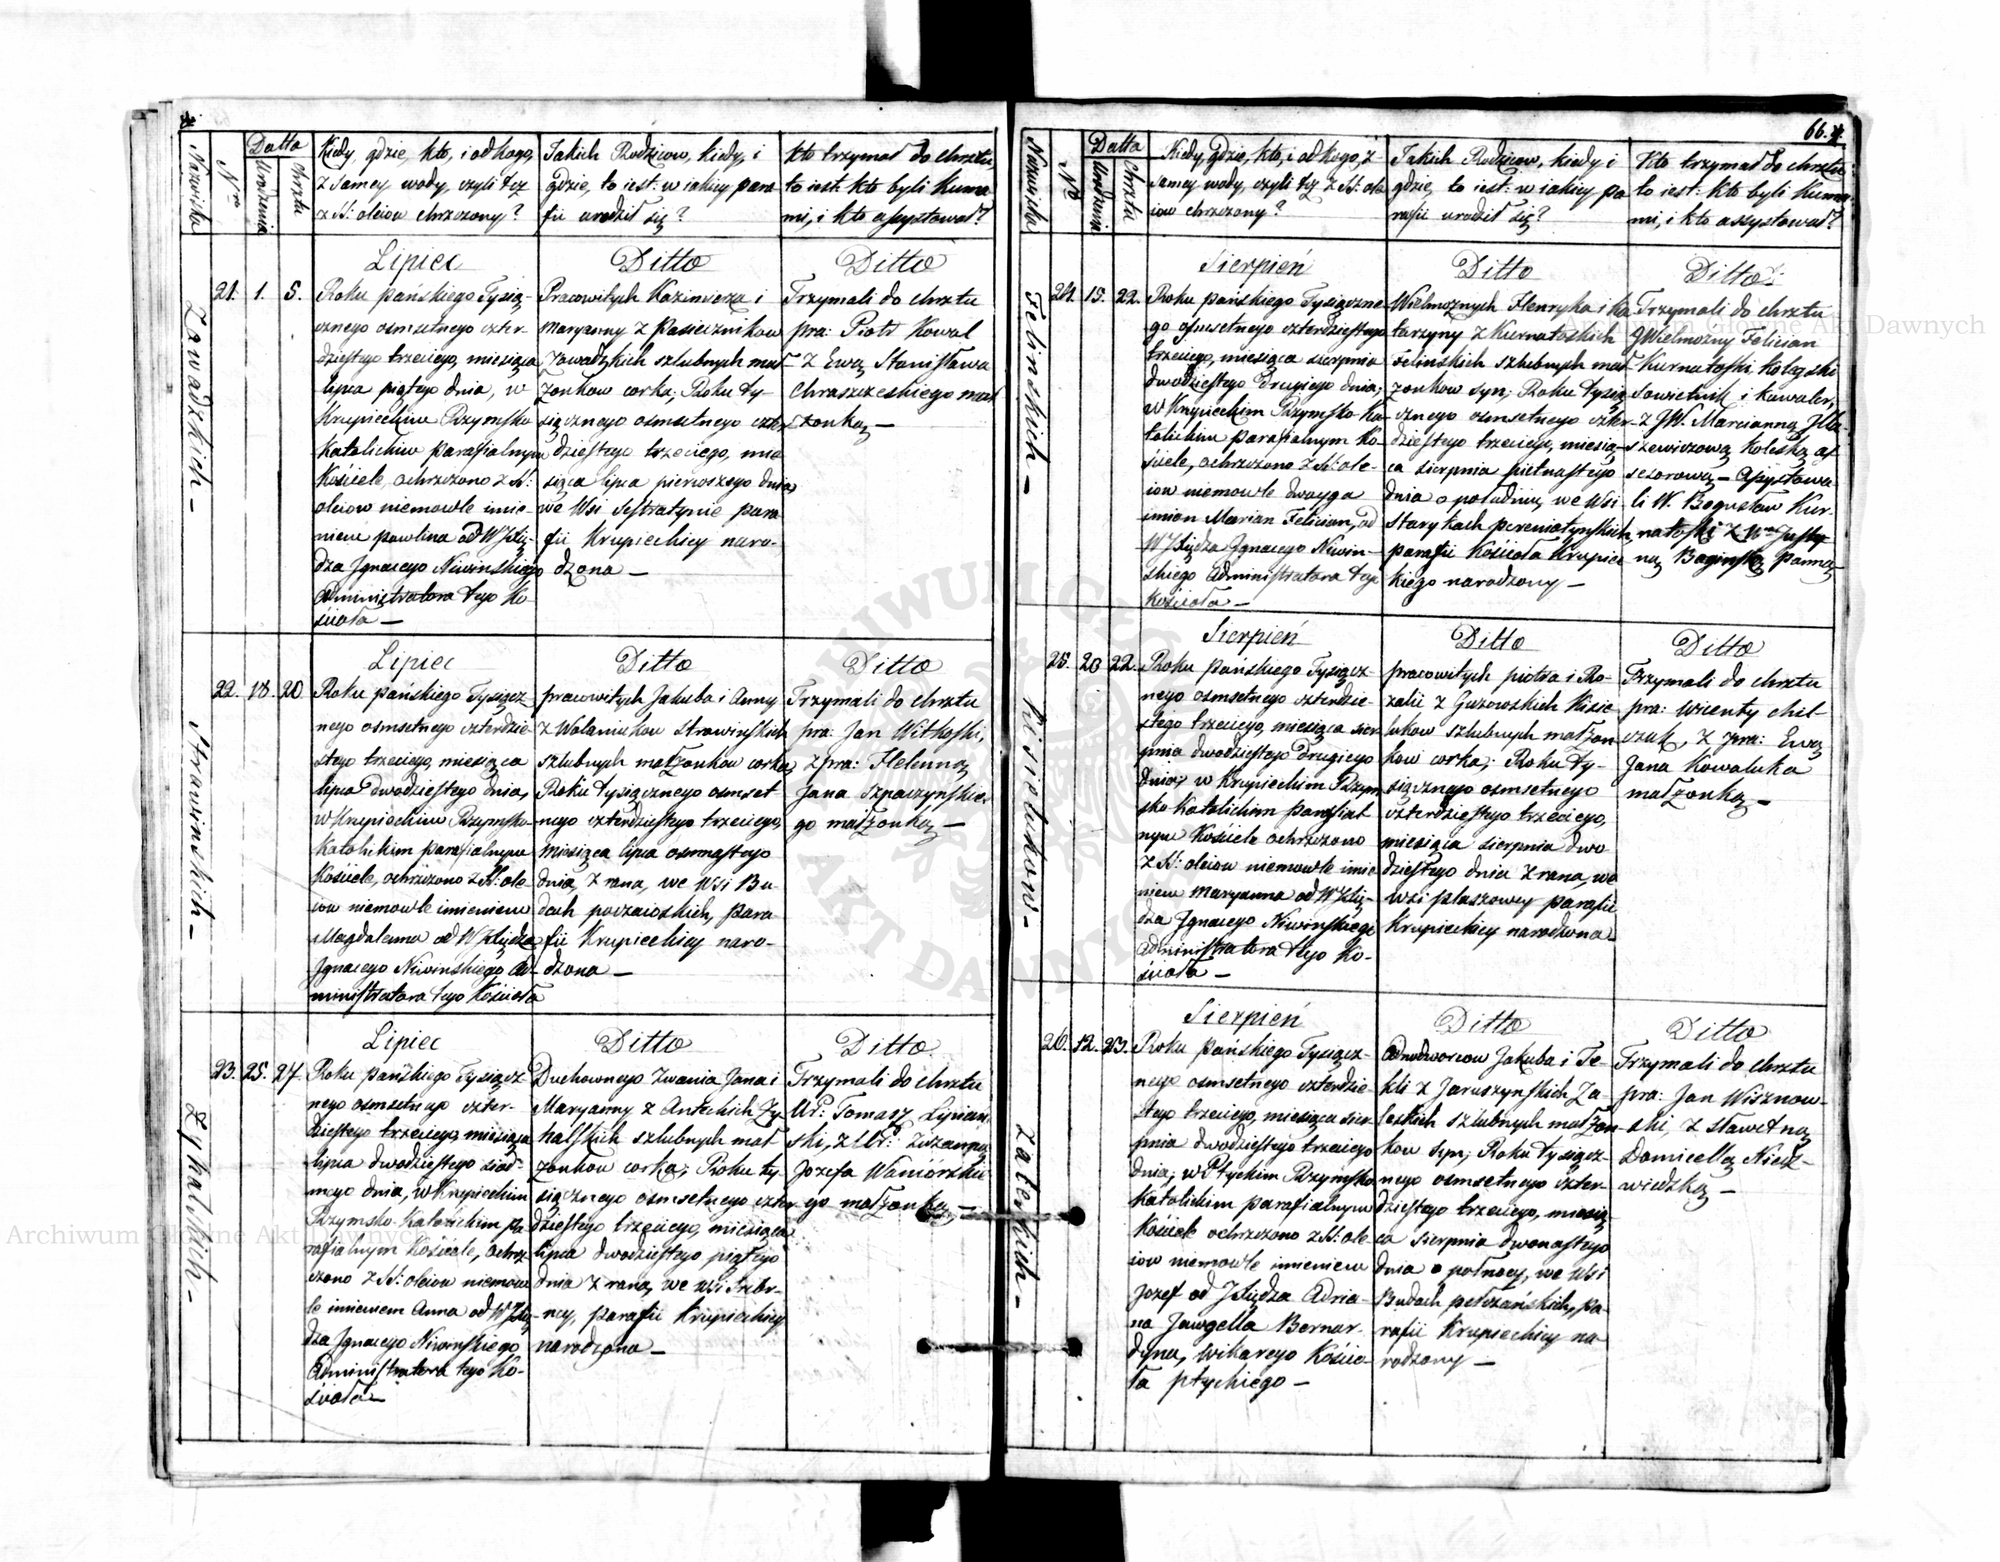 66.
Nazwisko
Nro
Datta
Urodzenia
Chrztu
Kiedy, gdzie, kto, i od kogo,
z samey wody, czyli tez
z SS: oleiow chrzczony?
Jakich Rodzicow, kiedy, i
gdzie, to iest: w iakiey para
fii urodził się?
Kto trzymał do chrztu,
to iest: kto byli Kuma
mi, i kto assystował?
Zawadzkich –
21. 1. 5.
Lipiec
Roku pańskiego Tysią-
cznego osmsetnego czter
dziestego trzeciego, miesiąca
lipca piątego dnia, w
Krupieckim Rzymsko
Katolickim parafialnym
Kościele, ochrzczono z SS:
oleiow niemowle imie-
niem pawlina od WJXię-
dza Jgnacego Niwinskiego
Administratora tego Ko-
ścioła –
Ditto
Pracowitych Kazimierza i
Maryanny z Pasiecznikow
Zawadzkich szlubnych mał
żonkow corka; Roku ty-
siącznego osmsetnego czter
dziestego trzeciego, mie
siąca lipca pierwszego dnia,
we Wsi Sestratynie para
fii Krupieckiey naro-
dzona –
Ditto
Trzymali do chrztu
pra: Piotr Kowal
z Ewą Stanisława
Chraszczeskiego mał
żonką –
Strawinskich –
22. 18. 20
Lipiec
Roku pańskiego Tysiącz
nego osmsetnego czterdzie
stego trzeciego, miesiąca
lipca dwodziestego dnia,
w Krupieckim Rzymsko-
Katolickim parafialnym
Kościele, ochrzczono z SS: ole
iow niemowle imieniem
Magdalena od WJXiędza
Jgnacego Niwinskiego Ad-
ministratora tego Kościoła
Ditto
pracowitych Jakuba i Anny
z Wolaniukow Strawinskich
szlubnych małżonkow corka,
Roku tysiącznego osmset
nego czterdziestego trzeciego,
miesiąca lipca osmnastego
dnia, z rana, we Wsi Bu-
dach poczaioskich, para
fii Krupieckiey naro-
dzona –
Ditto
Trzymali do chrztu
pra: Jan Witkoski,
z pra: Helenną
Jana Szpaczynskie-
go małżonką –
Zyhalskich –
23. 25. 27
Lipiec
Roku pańskiego Tysiącz
nego osmsetnego czter-
dziestego trzeciego, miesiąca
lipca dwodziestego siod-
mego dnia, w Krupieckim
Rzymsko-Katolickim pa
rafialnym Kościele, ochrz
czono z SS: oleiow niemow
le imieniem Anna od WJXię
dza Jgnacego Niwinskiego
Administratora tego Ko-
ścioła –
Ditto
Duchownego Zwania Jana i
Maryanny z Anteckich Zy
halskich szlubnych mał
żonkow corka; Roku ty
siącznego osmsetnego czter
dziestego trzeciego, miesiąca
lipca dwodziestego piątego
dnia z rana, we wsi Srebr-
ney, parafii Krupieckiey
narodzona –
Ditto
Trzymali do chrztu
Ur: Tomasz Lipian
ski, z Ur: Zuzanną
Jozefa Waniorskie
go małżonką –
Nazwisko
Nro
Datta
Urodzenia
Chrztu
Kiedy, gdzie, kto, i od kogo, z
samey wody, czyli tez z SS: ole
iow chrzczony?
Jakich Rodzicow, kiedy i
gdzie, to iest: w iakiey pa
rafii urodził się?
Kto trzymał do chrztu;
to iest: kto byli Kuma-
mi, i kto assystował?
Felinskich –
24. 15. 22.
Sierpień
Roku pańskiego Tysiączne
go osmsetnego czterdziestego
trzeciego, miesiąca sierpnia
dwodziestego drugiego dnia;
w Krupieckim Rzymsko-Ka
tolickim parafialnym Ko-
ściele, ochrzczono z SS: ole-
iow niemowle dwoyga
imion Marian Felician, od
WJXiędza Jgnacego Niwin-
skiego Administratora tego
Kościoła –
Ditto
Wielmożnych Henryka i Ka
tarzyny z Kurnatoskich
Felinskich szlubnych mał
żonkow syn; Roku tysią
cznego osmsetnego czter-
dziestego trzeciego, miesią-
ca sierpnia piętnastego
dnia o południu, we Wsi
Starykach pereniatynskich,
parafii Kościoła Krupiec
kiego narodzony –
Ditto
Trzymali do chrztu
JWielmożny Felician
Kurnatoski Kolegski
Sowietnik i kawaler,
z JW. Marcianną Jlla-
szewiczową Koleską as
sesorową – Assystowa
li W. Bogusław Kur-
natoski z Wną Justy
ną Baginską panną –
Kisielukow –
25. 20 22.
Sierpień
Roku pańskiego Tysiącz-
nego osmsetnego czterdzie-
stego trzeciego, miesiąca sier
pnia dwodziestego drugiego
dnia; w Krupieckim Rzym
sko Katolickim parafial
nym Kościele ochrzczono
z SS: oleiow niemowle imie
niem Maryanna od WJXię-
dza Jgnacego Niwinskiego
Administratora tego Ko-
ścioła –
Ditto
pracowitych piotra i Ro-
zalii z Guzowskich Kisie
lukow szlubnych małżon
kow corka; Roku ty-
siącznego osmsetnego
czterdziestego trzeciego,
miesiąca sierpnia dwo
dziestego dnia z rana, we
wsi płaszowey parafii
Krupieckiey narodzona
Ditto
Trzymali do chrztu
pra: Wicenty chil-
czuk, z pra: Ewą
Jana Kowaluka
małżonką –
Zaleskich –
26. 12. 23.
Sierpień
Roku pańskiego Tysiącz-
nego osmsetnego czterdzie-
stego trzeciego, miesiąca sier
pnia dwodziestego trzeciego
dnia; w Ptyckim Rzymsko
Katolickim parafialnym
Kościele ochrzczono z SS: ole
iow niemowle imieniem
Jozef od JXiędza Adria-
na Jawgella Bernar-
dyna, wikarego Koście-
ła ptyckiego –
Ditto
Odnodworcow Jakuba i Te-
kli z Jaruszynskich Za-
leskich szlubnych małżon
kow syn; Roku tysiącz-
nego osmsetnego czter-
dziestego trzeciego, miesią-
ca sierpnia dwonastego
dnia o połnocy, we Wsi
Budach pełczańskich, pa-
rafii Krupieckiey na
rodzony –
Ditto
Trzymali do chrztu
pra: Jan Wisznow-
ski, z sławetną
Domicellą Niedz-
wiedzką –
ARCHIWUM GŁÓWNE AKT DAWNYCH
Archiwum Główne Akt Dawnych
Archiwum Główne Akt Dawnych